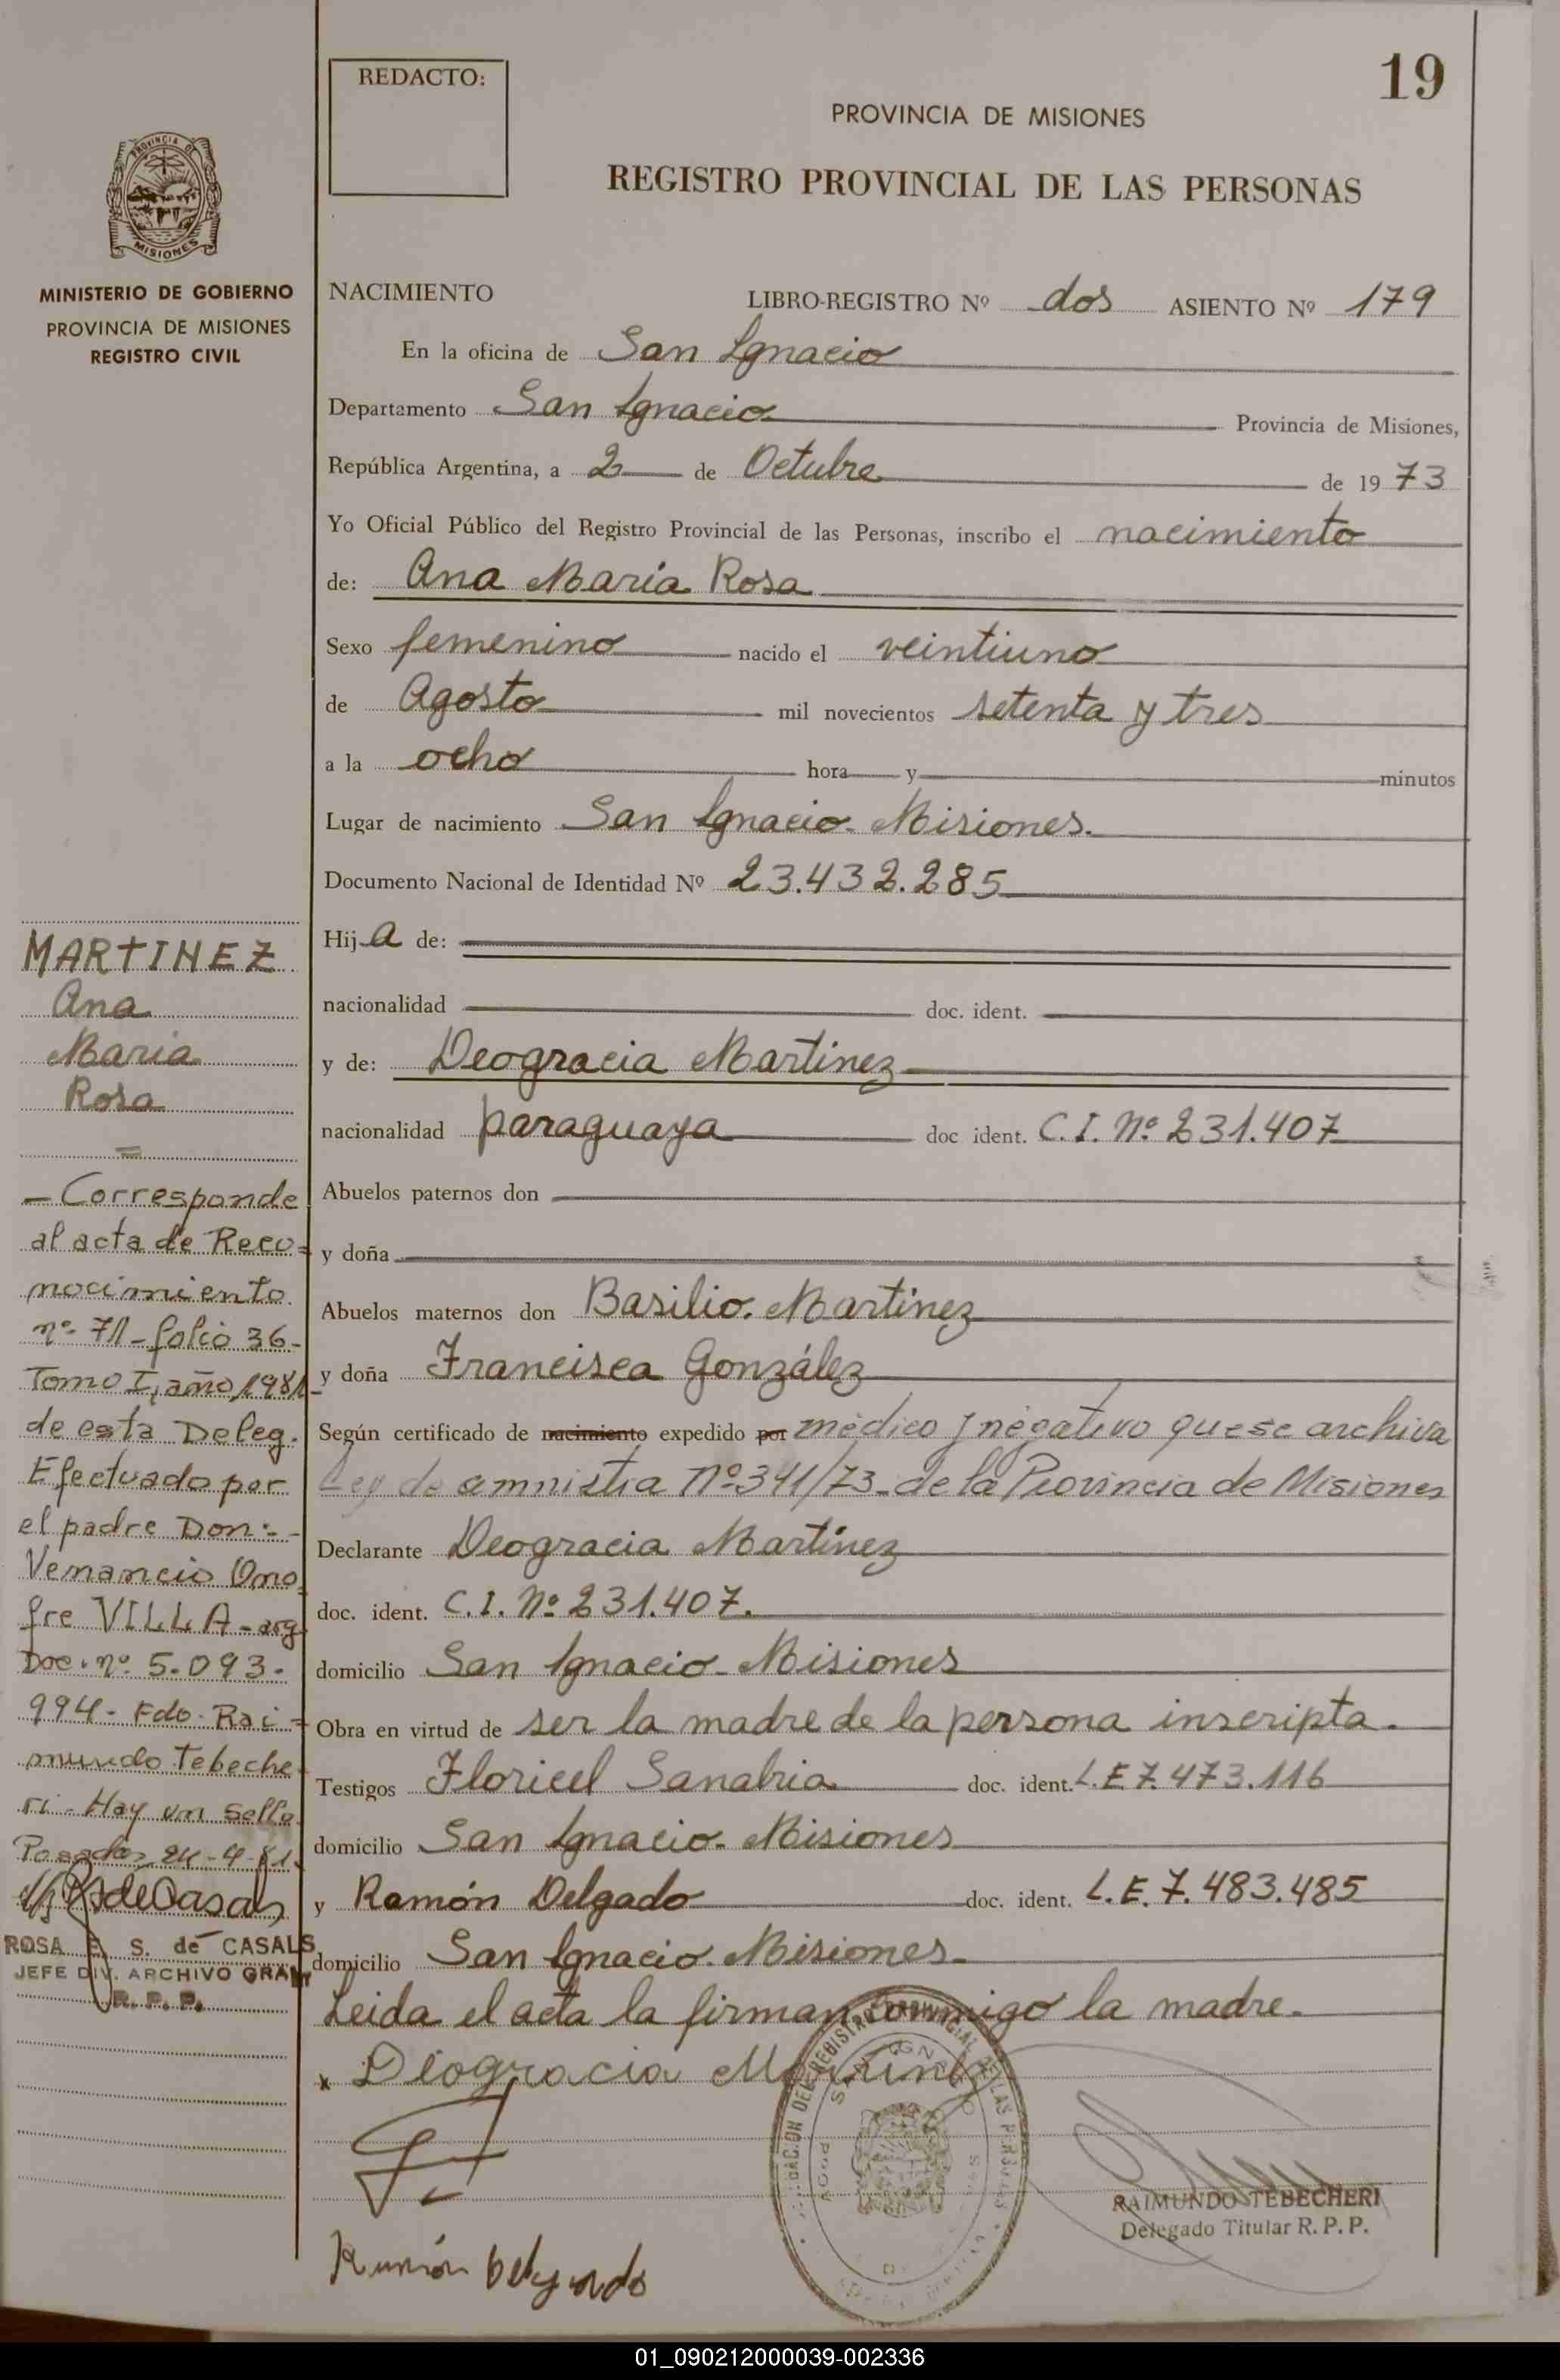 REDACTO:
19
PROVINCIA DE MISIONES
REGISTRO PROVINCIAL DE LAS PERSONAS
PROVINCIA DE
MISIONES
MINISTERIO DE GOBIERNO
PROVINCIA DE MISIONES
REGISTRO CIVIL
NACIMIENTO LIBRO-REGISTRO Nº dos ASIENTO Nº 179
En la oficina de San Ignacio
Departamento San Ignacio Provincia de Misiones,
República Argentina, a 2 de Octubre de 1973
Yo Oficial Público del Registro Provincial de las Personas, inscribo el nacimiento
de: Ana Maria Rosa
Sexo femenino nacido el veintiuno
de Agosto mil novecientos setenta y tres
a la ocho hora y minutos
Lugar de nacimiento San Ignacio - Misiones.
Documento Nacional de Identidad Nº 23.432.285
Hija de:
nacionalidad doc. ident.
y de: Deogracia Martinez
nacionalidad paraguaya doc ident. C.I. Nº 231.407
Abuelos paternos don
y doña
Abuelos maternos don Basilio Martinez
y doña Francisca González
Según certificado de nacimiento expedido por médico y negativo que se archiva
Ley de amnistia Nº 341/73 - de la Provincia de Misiones
Declarante Deogracia Martinez
doc. ident. C.I. Nº 231.407.
domicilio San Ignacio - Misiones
Obra en virtud de ser la madre de la persona inscripta.
Testigos Floricel Sanabria doc. ident. L.E 7.473.116
domicilio San Ignacio - Misiones
y Ramón Delgado doc. ident. L.E. 7.483.485
domicilio San Ignacio - Misiones
Leida el acta la firman conmigo la madre.
x Diogracia Martinez
Ramón Delgado
RAIMUNDO TEBECHERI
Delegado Titular R. P. P.
MARTINEZ
Ana
Maria
Rosa
=
- Corresponde
al acta de Reco=
nocimiento
nº 711 - folio 36 -
Tomo I, año 1981 -
de esta Deleg.
Efectuado por
el padre Don: -
Venancio Ono
fre VILLA - arg
Doc. nº 5.093.
994 - Fdo. Rai=
mundo Tebeche
ri - Hay un sello
Posadas, 24-4-81.
RSdeCasals
ROSA E. S. de CASALS
JEFE DIV. ARCHIVO GRAL
R. P. P.
01_090212000039-002336